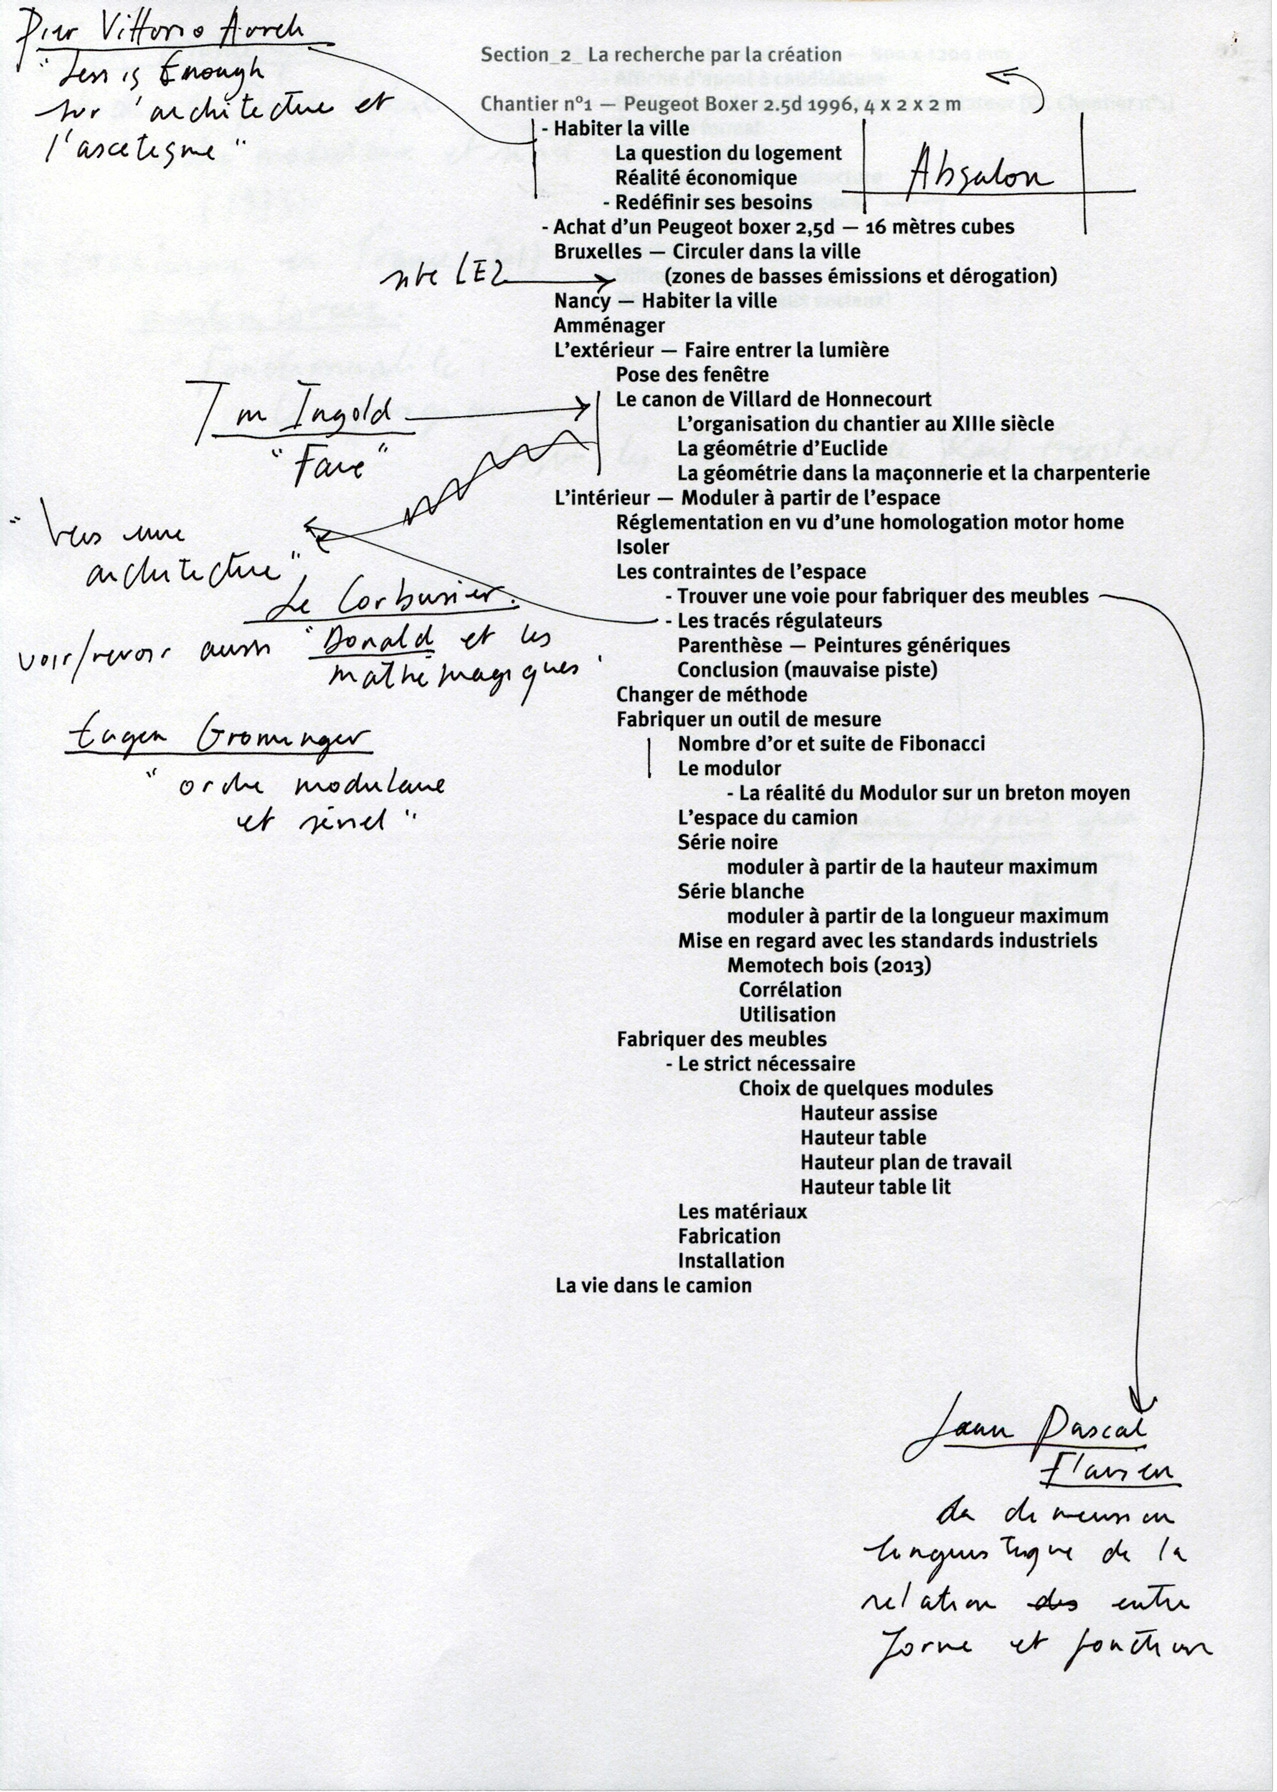 Pier Vittorio Aureli
"Less is Enough
sur l'architecture et
l'ascétisme"
Section_2_ La recherche par la création
Chantier n°1 — Peugeot Boxer 2.5d 1996, 4 x 2 x 2 m
- Habiter la ville
La question du logement
Réalité économique
- Redéfinir ses besoins
Absalon
- Achat d'un Peugeot boxer 2,5d — 16 mètres cubes
Bruxelles — Circuler dans la ville
site LEZ
(zones de basses émissions et dérogation)
Nancy — Habiter la ville
Amménager
L'extérieur — Faire entrer la lumière
Pose des fenêtre
Tim Ingold
"Faire"
Le canon de Villard de Honnecourt
L'organisation du chantier au XIIIe siècle
La géométrie d'Euclide
La géométrie dans la maçonnerie et la charpenterie
L'intérieur — Moduler à partir de l'espace
Réglementation en vu d'une homologation motor home
Isoler
Les contraintes de l'espace
- Trouver une voie pour fabriquer des meubles
- Les tracés régulateurs
Parenthèse — Peintures génériques
Conclusion (mauvaise piste)
"Vers une
architecture"
Le Corbusier.
voir/revoir aussi "Donald et les
mathémagiques"
Eugen Grominger
"ordre modulaire
et sériel"
Changer de méthode
Fabriquer un outil de mesure
Nombre d'or et suite de Fibonacci
Le modulor
- La réalité du Modulor sur un breton moyen
L'espace du camion
Série noire
moduler à partir de la hauteur maximum
Série blanche
moduler à partir de la longueur maximum
Mise en regard avec les standards industriels
Memotech bois (2013)
Corrélation
Utilisation
Fabriquer des meubles
- Le strict nécessaire
Choix de quelques modules
Hauteur assise
Hauteur table
Hauteur plan de travail
Hauteur table lit
Les matériaux
Fabrication
Installation
La vie dans le camion
Jean Pascal
Flavien
La dimension
linguistique de la
relation des entre
forme et fonction